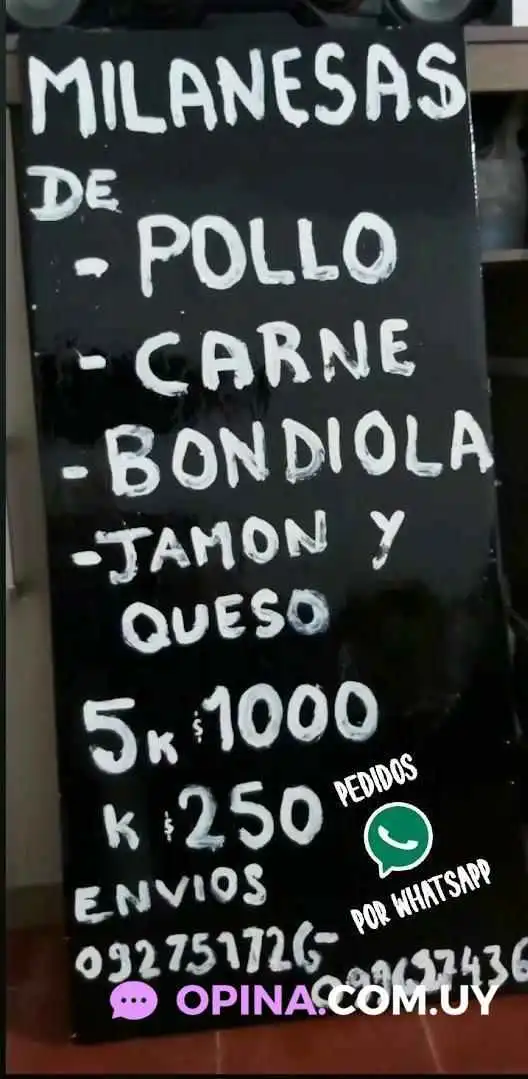 MILANESAS
DE
- POLLO
- CARNE
- BONDIOLA
- JAMON Y
QUESO
5K $1000
K $250
PEDIDOS
POR WHATSAPP
ENVIOS
092751726-
OPINA.COM.UY